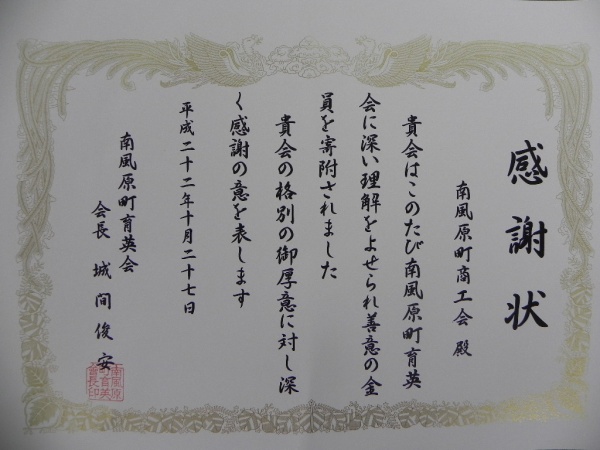 感謝状
南風原町商工会 殿
貴会はこのたび南風原町育英
会に深い理解をよせられ善意の金
員を寄附されました
貴会の格別の御厚意に対し深
く感謝の意を表します
平成二十二年十月二十七日
南風原町育英会
会長 城間俊安
南風原
町育英
会長印